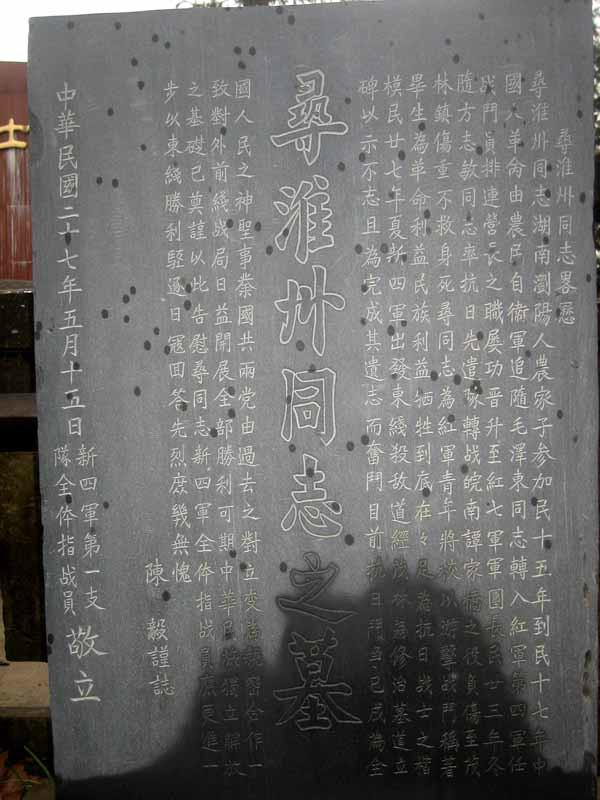 尋淮州同志畧歷
尋淮州同志湖南瀏陽人農家子參加民十五年到民十七年中
國人革命由農民自衛軍追隨毛澤東同志轉入紅軍第四軍任
战鬥員排連營長之職屡功晋升至紅七軍軍團長民廿三年冬
隨方志敏同志率抗日先遣隊轉战皖南譚家橋之役負傷至茂
林鎮傷重不救身死尋同志為紅軍青年將校以游擊战鬥稱著
畢生為革命利益民族利益牺牲到底在々足為抗日战士之楷
模民廿七年夏新四軍出發東綫殺敌道經茂林為修治墓道立
碑以示不忘且為完成其遺志而奮鬥目前抗日鬥争已成為全
尋淮州同志之墓
國人民之神聖事業國共兩党由過去之對立变為親密合作一
致對外前綫战局日益開展全部勝利可期中華民族獨立解放
之基礎已奠謹以此告慰尋同志新四軍全体指战員庶更進一
步以東綫勝利驅逐日寇回答先烈庶幾無愧
陳毅謹誌
中華民國二十七年五月十五日
新四軍第一支
隊全体指战員
敬立